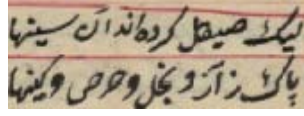 لیک صیقل کرده‌اند آن سینها
پاک ز آز و بخل و حرص و کینها